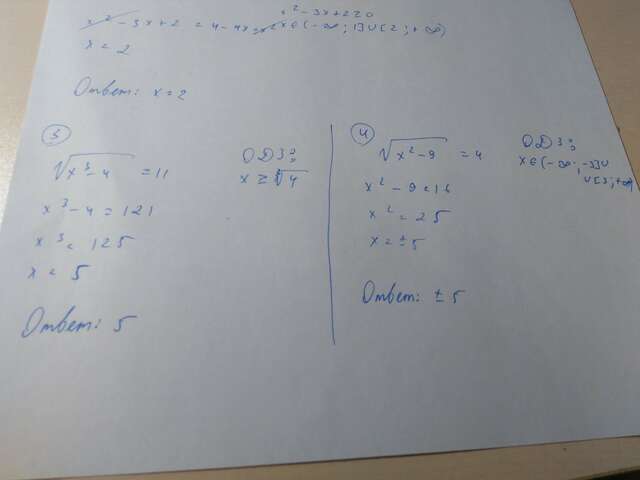 x² - 3x + 2 ≥ 0
x² - 3x + 2 = 4 - 4x + x² x ∈ (-∞; 1] ∪ [2; +∞)
x = 2
Ответ: x = 2
3
√x³ - 4 = 11
ОДЗ:
x ≥ ∛4
x³ - 4 = 121
x³ = 125
x = 5
Ответ: 5
4
√x² - 9 = 4
ОДЗ:
x ∈ (-∞; -3] ∪
∪ [3; +∞)
x² - 9 = 16
x² = 25
x = ± 5
Ответ: ± 5